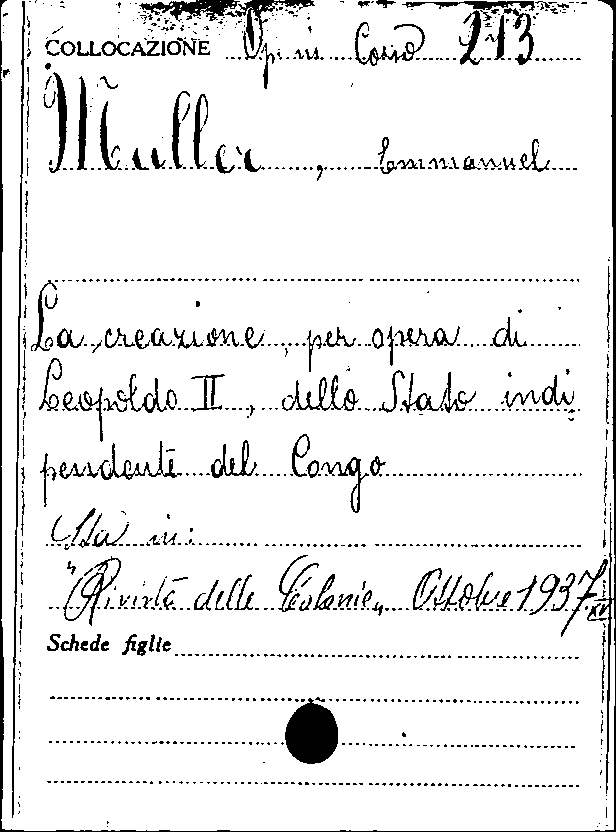 COLLOCAZIONE Op. in Corso 213
Muller, Emmanuel
La creazione, per opera di
Leopoldo II, dello Stato indi
pendente del Congo
Sta in:
"Rivista delle Colonie„ Ottobre 1937. XV
Schede figlie